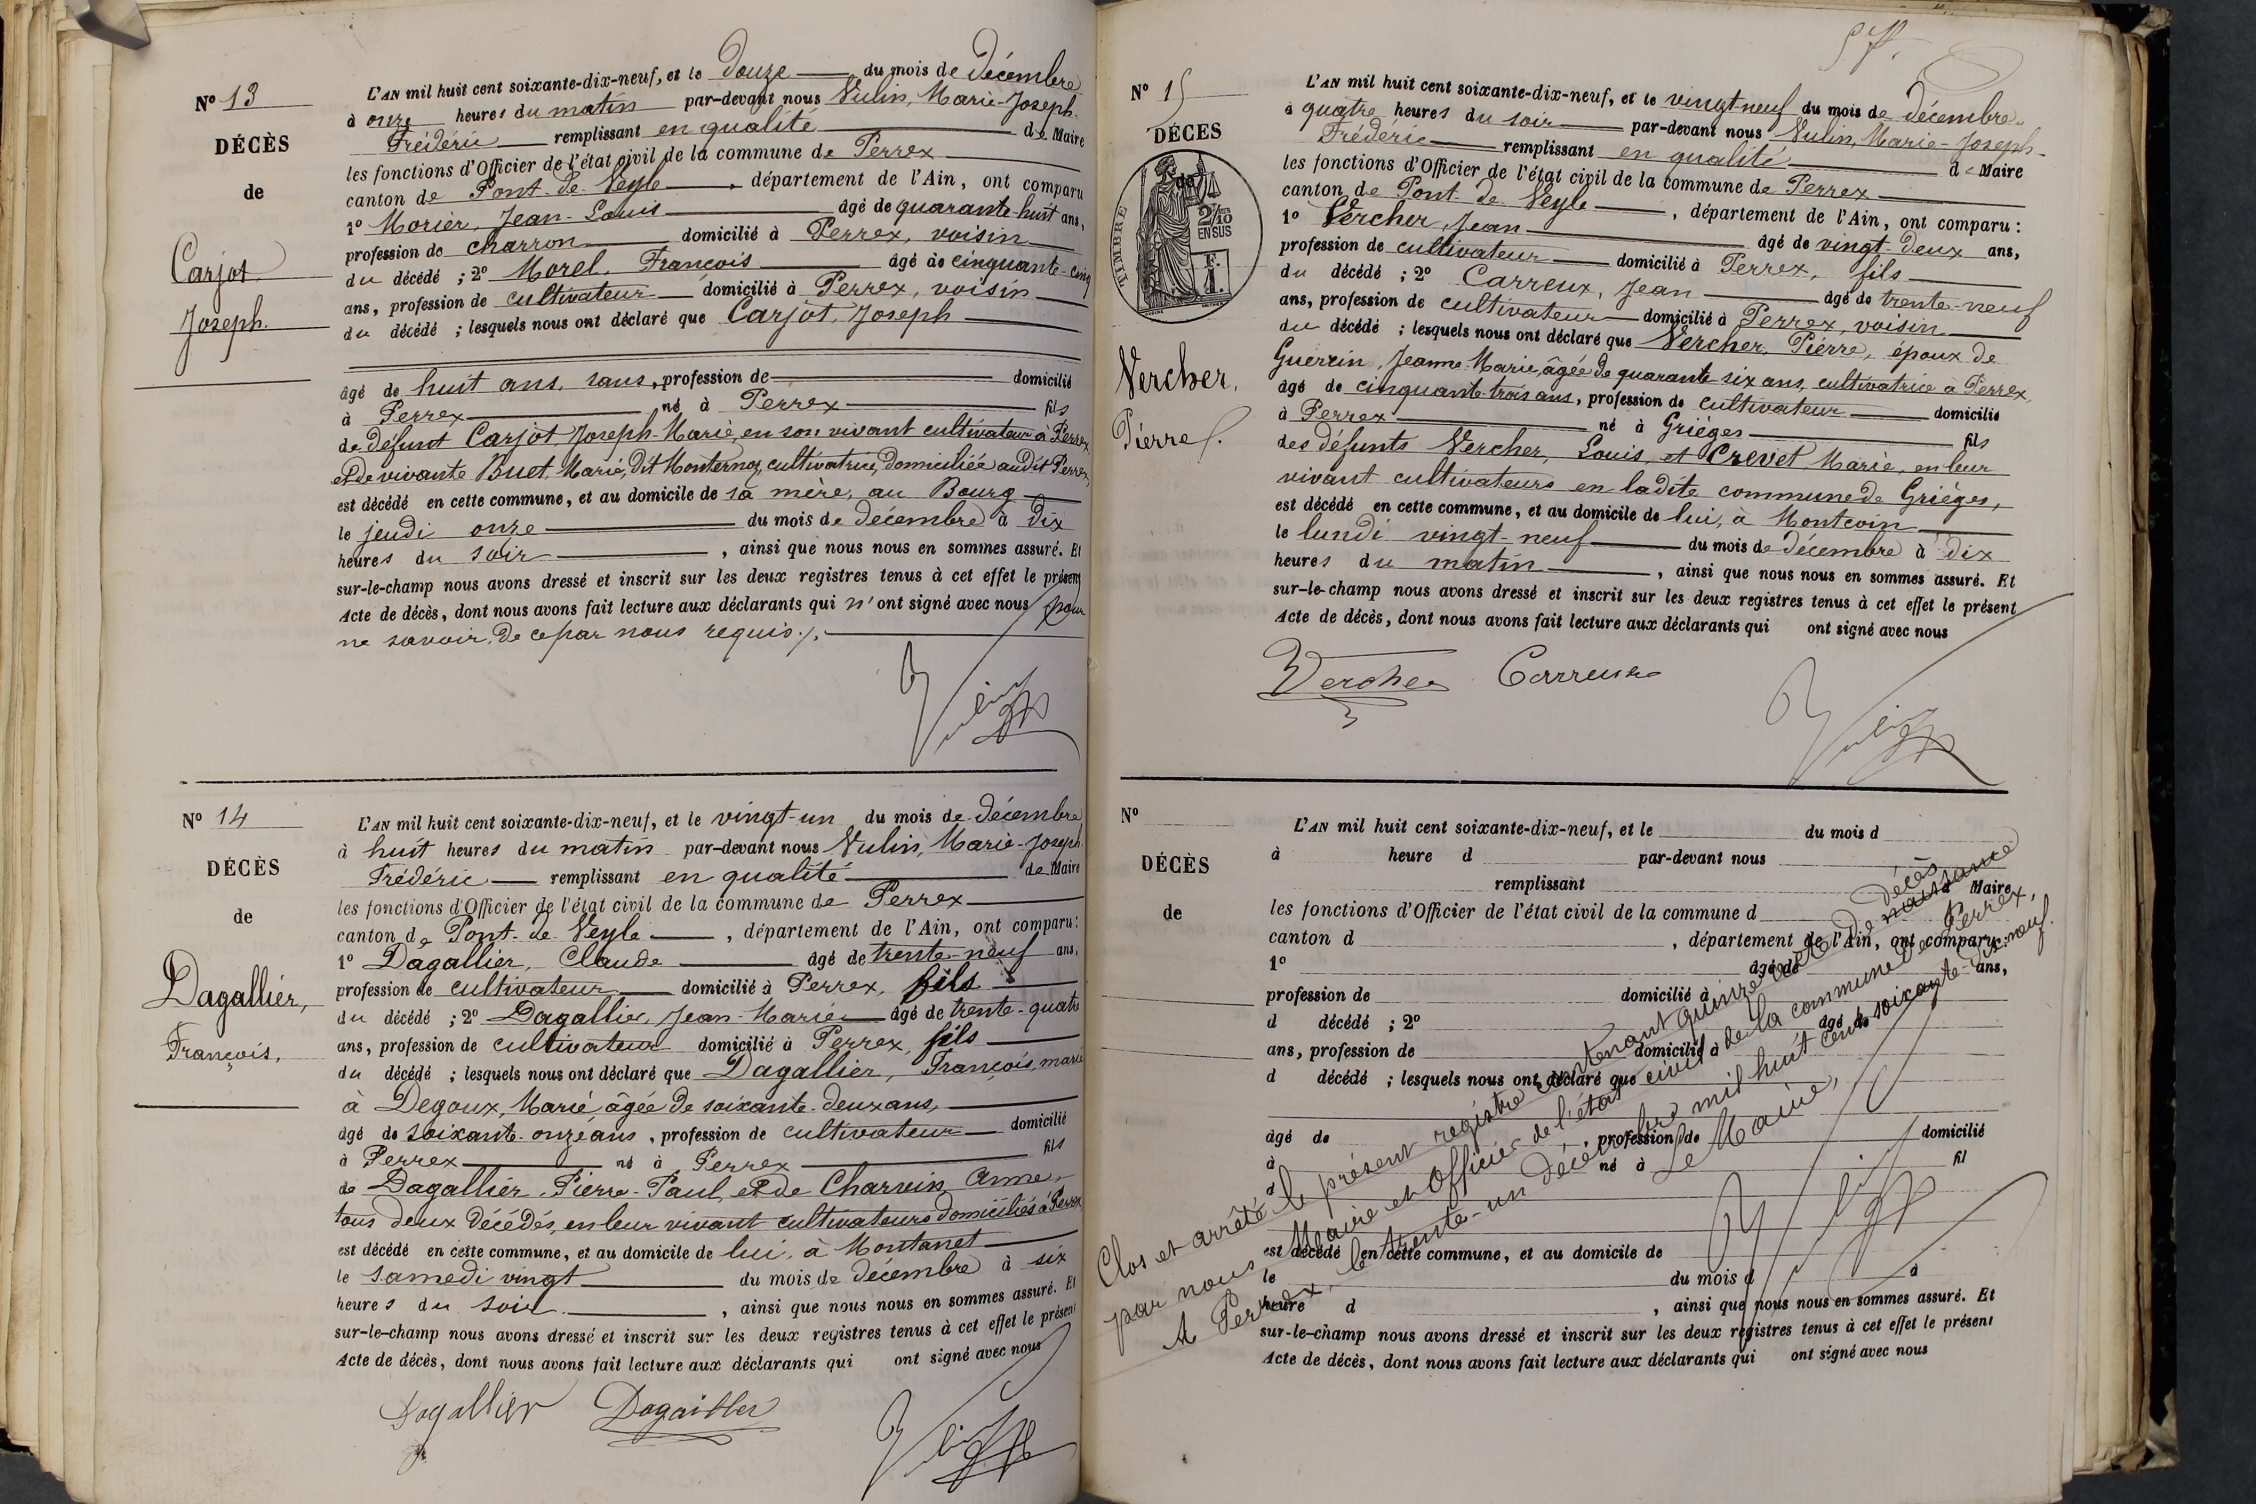 N° 13
DÉCÈS
de
Carjot
Joseph.
L'AN mil huit cent soixante-dix-neuf, et le douze du mois de décembre
à onze heures du matin par-devant nous Vulin, Marie-Joseph-
Frédéric remplissant en qualité de Maire
les fonctions d'Officier de l'état civil de la commune de Perrex
canton de Pont-de-Veyle, département de l'Ain, ont comparu
1° Morier, Jean-Louis âgé de quarante-huit ans,
profession de charron domicilié à Perrex, voisin
du décédé ; 2° Morel, François âgé de cinquante-cinq
ans, profession de cultivateur domicilié à Perrex, voisin
du décédé ; lesquels nous ont déclaré que Carjot, Joseph
âgé de huit ans, sans, profession de domicilié
à Perrex né à Perrex fils
de défunt Carjot Joseph-Marie, en son vivant cultivateur à Perrex,
et de vivante Buet, Marie, dit Monternoz, cultivatrice, domiciliée audit Perrex,
est décédé en cette commune, et au domicile de sa mère, au Bourg
le jeudi onze du mois de décembre à dix
heures du soir, ainsi que nous nous en sommes assuré. Et
sur-le-champ nous avons dressé et inscrit sur les deux registres tenus à cet effet le présent
Acte de décès, dont nous avons fait lecture aux déclarants qui n'ont signé avec nous pour
ne savoir, de ce par nous requis./.
Vulin
N° 14
DÉCÈS
de
Dagallier,
François,
L'AN mil huit cent soixante-dix-neuf, et le vingt-un du mois de décembre
à huit heures du matin par-devant nous Vulin, Marie-Joseph-
Frédéric remplissant en qualité de Maire
les fonctions d'Officier de l'état civil de la commune de Perrex
canton de Pont-de-Veyle, département de l'Ain, ont comparu:
1° Dagallier, Claude âgé de trente-neuf ans,
profession de cultivateur domicilié à Perrex, fils
du décédé ; 2° Dagallier, Jean-Marie âgé de trente-quatre
ans, profession de cultivateur domicilié à Perrex, fils
du décédé ; lesquels nous ont déclaré que Dagallier, François, marié
à Degoux, Marie âgée de soixante-deux ans,
âgé de soixante-onze ans, profession de cultivateur domicilié
à Perrex né à Perrex fils
de Dagallier, Pierre-Paul, et de Charvein Anne,
tous deux décédés, en leur vivant cultivateurs domiciliés à Perrex
est décédé en cette commune, et au domicile de lui, à Montanet
le samedi vingt du mois de décembre à six
heures du soir, ainsi que nous nous en sommes assuré. Et
sur-le-champ nous avons dressé et inscrit sur les deux registres tenus à cet effet le présent
Acte de décès, dont nous avons fait lecture aux déclarants qui ont signé avec nous
Dagallier Dagallier
Vulin
N° 15
DÉCÈS
de
TIMBRE
2/10
EN SUS
F.
1.
Vercher,
Pierre.
L'AN mil huit cent soixante-dix-neuf, et le vingt neuf du mois de décembre
à quatre heures du soir par-devant nous Vulin, Marie-Joseph-
Frédéric remplissant en qualité de Maire
les fonctions d'Officier de l'état civil de la commune de Perrex
canton de Pont-de-Veyle, département de l'Ain, ont comparu:
1° Vercher, Jean âgé de vingt-deux ans,
profession de cultivateur domicilié à Perrex, fils
du décédé ; 2° Carreux, Jean âgé de trente-neuf
ans, profession de cultivateur domicilié à Perrex, voisin
du décédé ; lesquels nous ont déclaré que Vercher, Pierre, époux de
Guerrin, Jeanne-Marie, âgée de quarante six ans, cultivatrice à Perrex,
âgé de cinquante-trois ans, profession de cultivateur domicilié
à Perrex né à Grièges fils
des défunts Vercher, Louis, et Crevet Marie, en leur
vivant cultivateurs en ladite commune de Grièges,
est décédé en cette commune, et au domicile de lui, à Montcoin
le lundi vingt-neuf du mois de décembre à dix
heures du matin, ainsi que nous nous en sommes assuré. Et
sur-le-champ nous avons dressé et inscrit sur les deux registres tenus à cet effet le présent
Acte de décès, dont nous avons fait lecture aux déclarants qui ont signé avec nous
Vercher Carreux
Vulin
N°
DÉCÈS
de
L'AN mil huit cent soixante-dix-neuf, et le du mois d
à heure d par-devant nous
remplissant d Maire
les fonctions d'Officier de l'état civil de la commune d
canton d , département de l'Ain, ont comparu:
1° âgé de ans,
profession de domicilié à
d décédé ; 2° âgé de
ans, profession de domicilié à
d décédé ; lesquels nous ont déclaré que
âgé de , profession de domicilié
à né à fil
d
est décédé en cette commune, et au domicile de
le du mois d à
heure d , ainsi que nous nous en sommes assuré. Et
sur-le-champ nous avons dressé et inscrit sur les deux registres tenus à cet effet le présent
Acte de décès, dont nous avons fait lecture aux déclarants qui ont signé avec nous
Clos et arrêté le présent registre contenant quinze actes de naissance décès
par nous, Maire et Officier de l'état civil de la commune de Perrex,
A Perrex, le trente-un décembre mil huit cent soixante-dix-neuf.
Le Maire,
Vulin